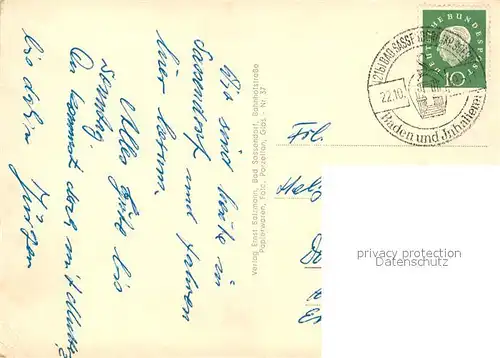 Wir sind heute in
Sassendorf und fahren
hier herum.
Alles Gute bis
Sonntag.
Du kommst doch mit Mutti?
bis dahin
Jürgen
Verlag Ernst Salzmann, Bad Sassendorf, Bahnhofstraße
Papierwaren, Foto, Porzellan, Glas - Nr. 37
(21b) BAD SASSENDORF
22.10.
Baden und Inhalieren
DEUTSCHE BUNDESPOST
10
Frl.
privacy protection
Datenschutz